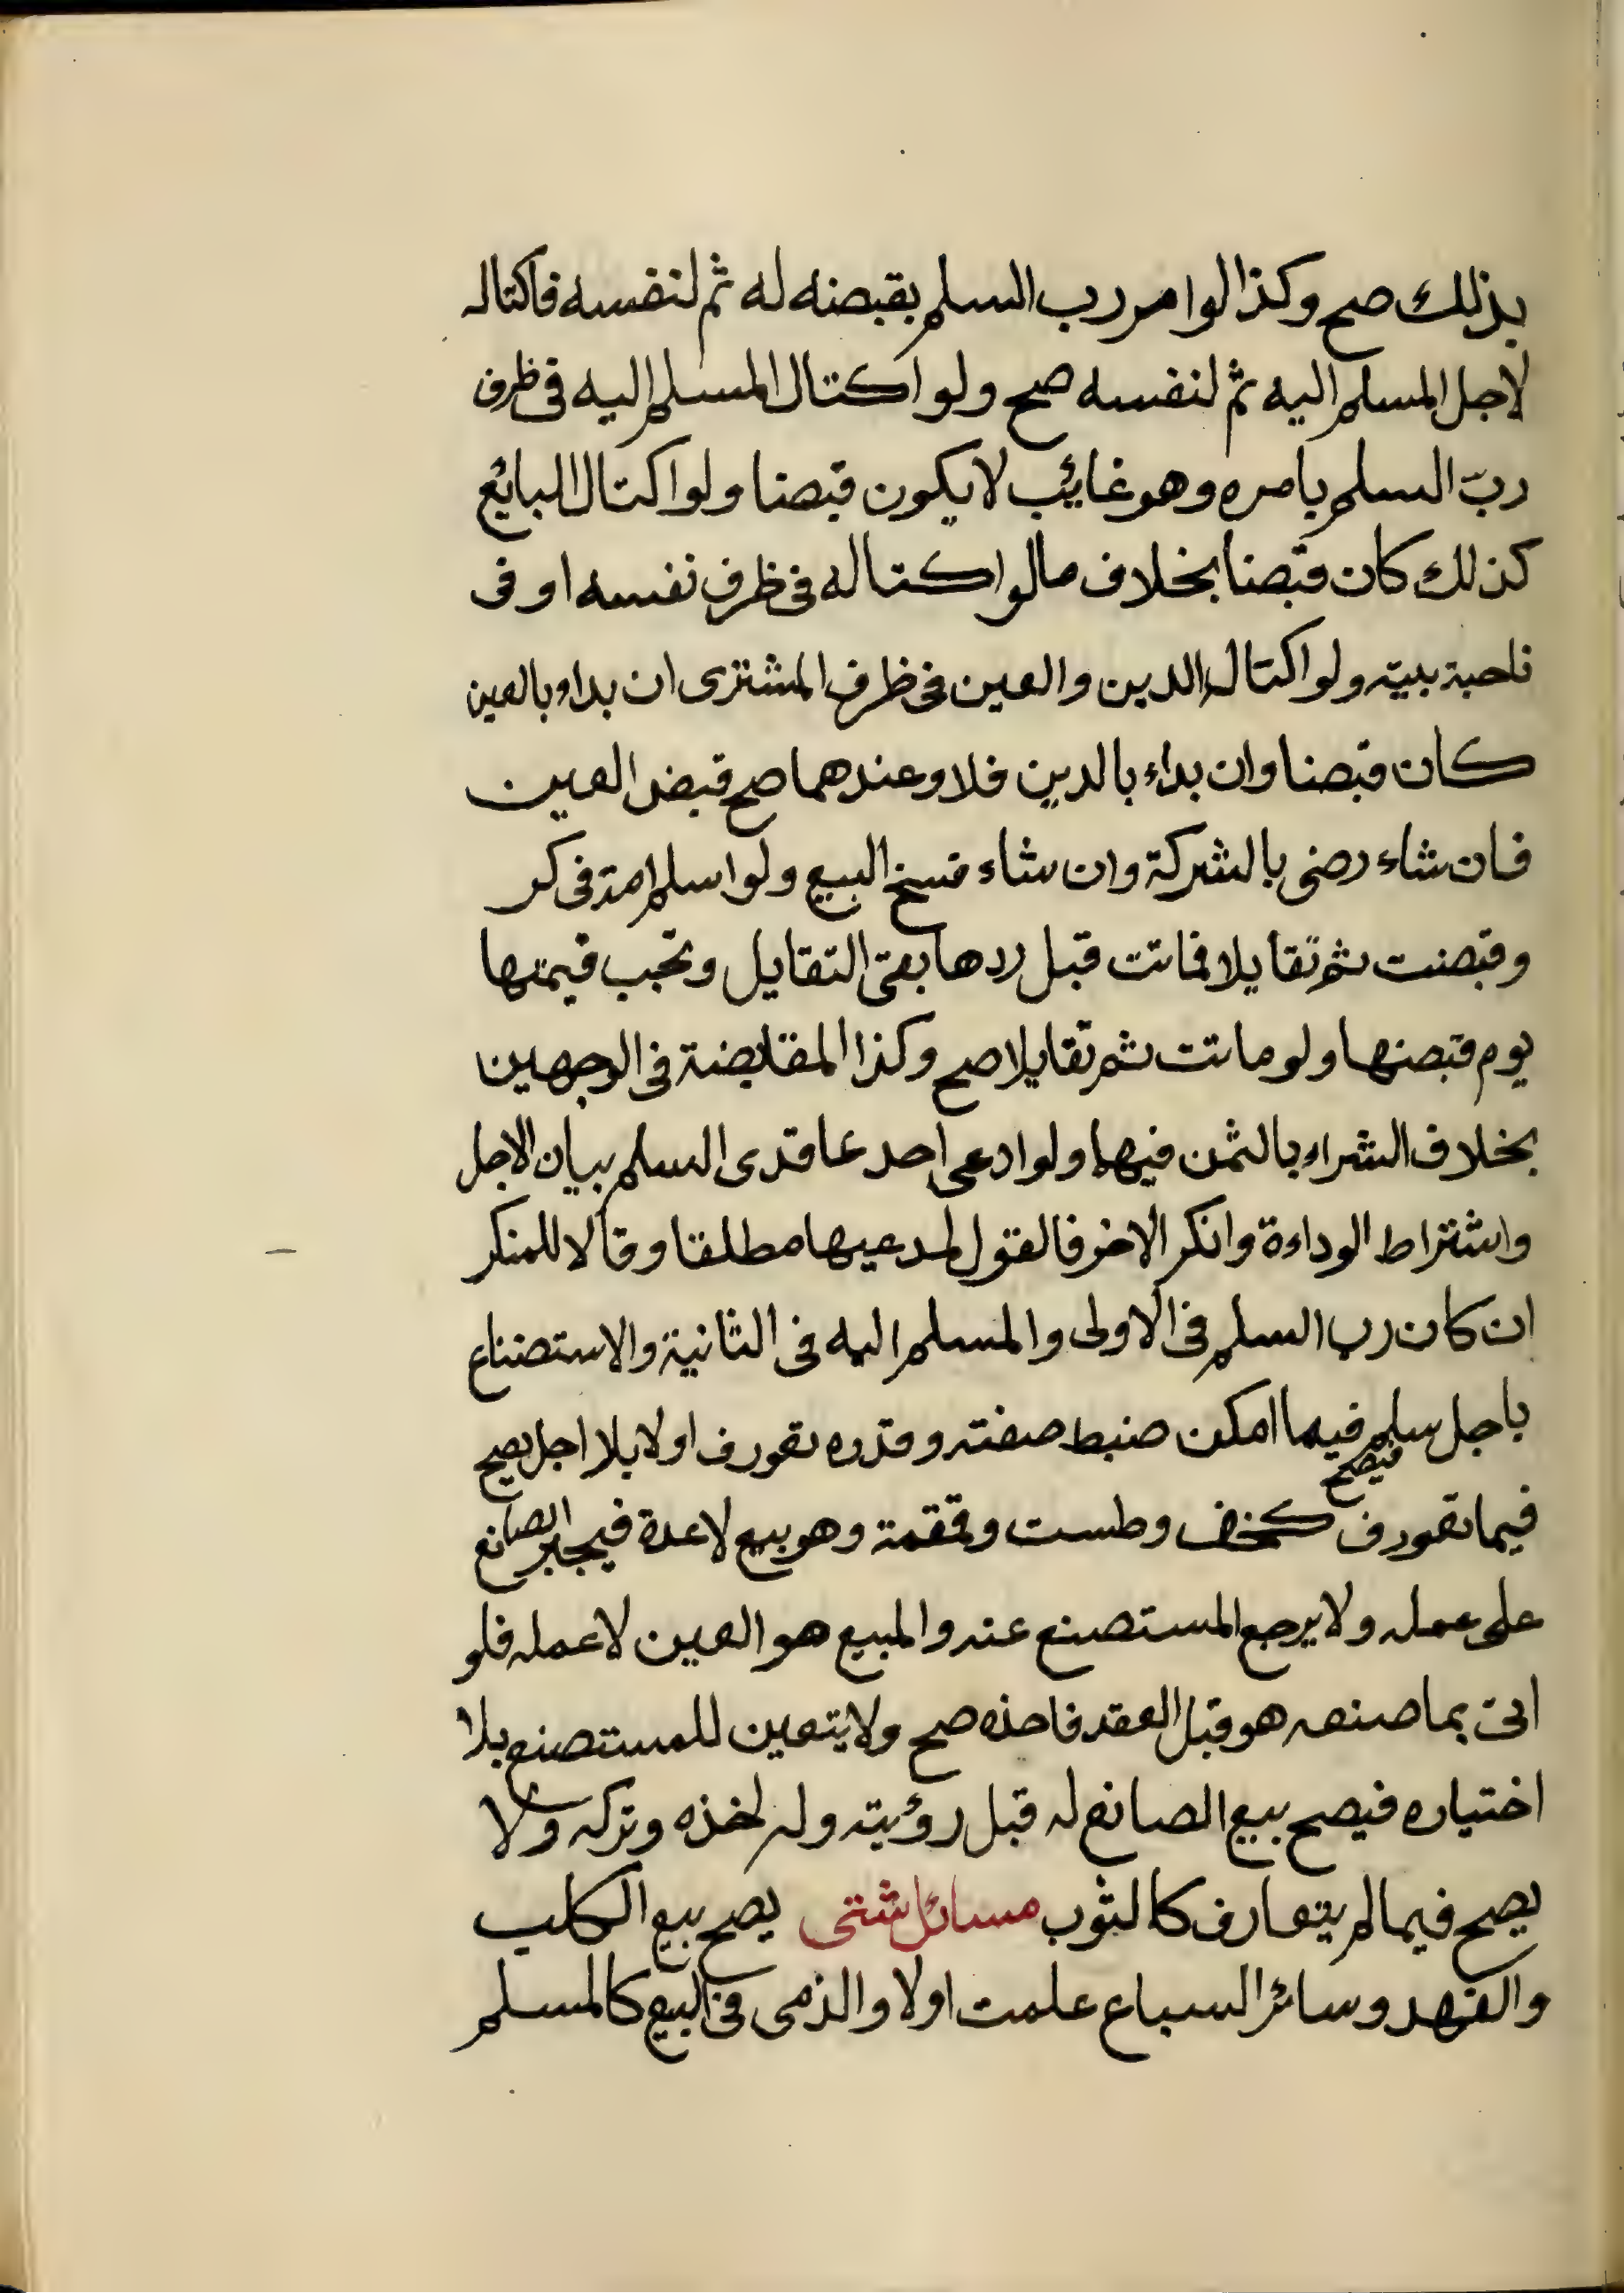 بذلك صح وكذا لو امر رب السلم بقبضه له ثم لنفسه فاكتاله
لاجل المسلم اليه ثم لنفسه صح ولو اكتال المسلم اليه فى ظرف
ربّ السلم بامره وهو غائب لا يكون قبضا ولو اكتال البائع
كذلك كان قبضا بخلاف ما لو اكتاله فى ظرف نفسه او فى
ناحية بيته ولو اكتال الدين والعين فى ظرف المشترى ان بداء بالعين
كان قبضا وان بداء بالدين فلا وعندهما صح قبض العين
فان شاء رضى بالشركة وان شاء فسخ البيع ولو اسلم امة فى كر
وقبضت ثم تقايلا فماتت قبل ردها بقى التقايل وتجب قيمتها
يوم قبضها ولو ماتت ثم تقايلا صح وكذا المقايضة فى الوجهين
بخلاف الشراء بالثمن فيهما ولو ادعى احد عاقدى السلم بيان الاجل
واشتراط الوداءة وانكر الاخر فالقول لمدعيها مطلقا وقالا للمنكر
ان كان رب السلم فى الاولى والمسلم اليه فى الثانية والاستصناع
باجل سلم فيصح فيما امكن ضبط صفته وقدره تعورف اولا بلا اجل يصح
فيما تعورف كخف وطست وقمقمة وهو بيع لا عدة فيجبر الصانع
على عمله ولا يرجع المستصنع عنه والمبيع هو العين لا عمله فلو
اتى بما صنعه هو قبل العقد فاخذه صح ولا يتعين للمستصنع بلا
اختياره فيصح بيع الصانع له قبل رؤيته وله اخذه وتركه ولا
يصح فيما لم يتعارف كالثوب مسائل شتى يصح بيع الكلب
والفهد وسائر السباع علمت اولا والذمى فى البيع كالمسلم